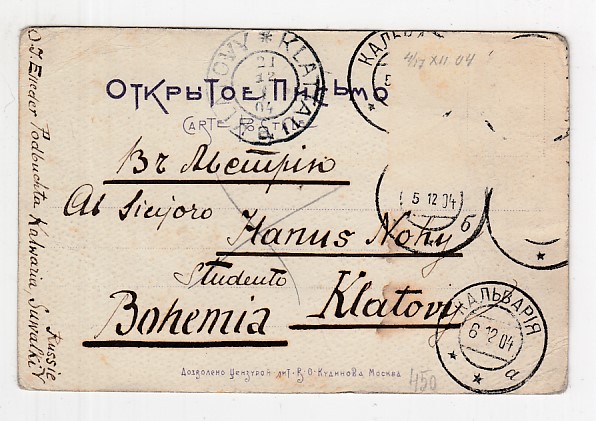 ОТКРЫТОЕ ПИСЬМО
CARTE POSTALE
KLATTAU * KLATOVY
21
12
04
КАЛЬВ
4/17 XII 04
5
Въ Австрію
Al Sinjoro
Hanus Nohy
Studento
Klatovy
Bohemia
5 12 04
б
КАЛЬВАРІЯ
6 12 04
а
Дозволено Цензурой лит. В.О. Кудинова Москва
450
Kalwaria, Suwalki
Russie